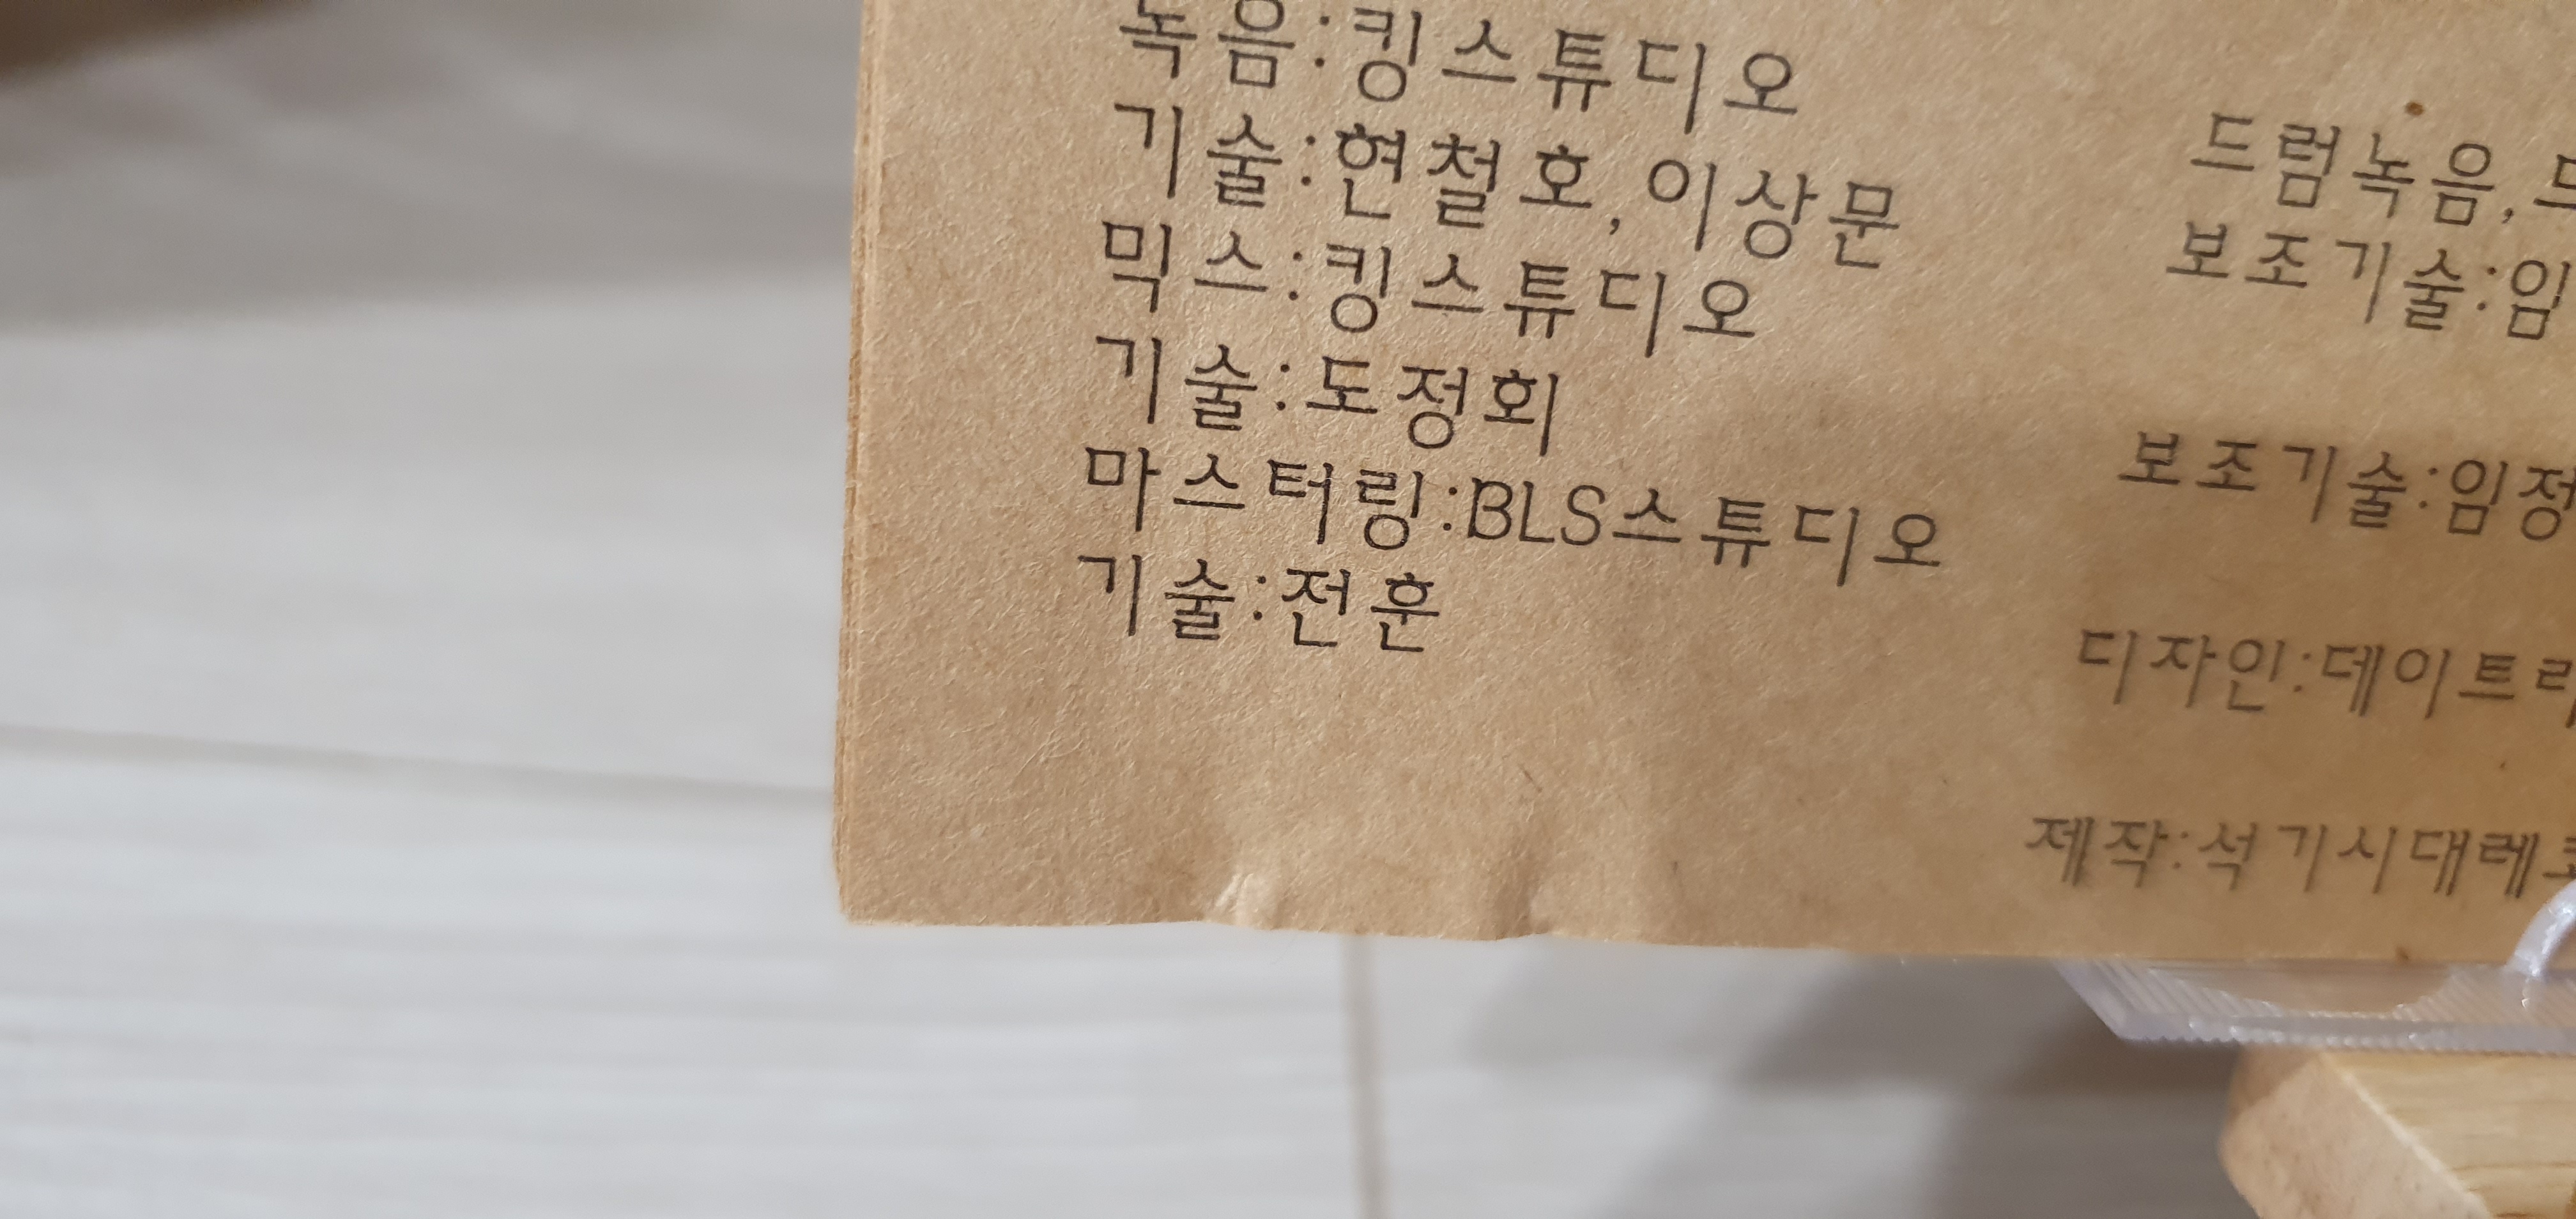 녹음:킹스튜디오
기술:현철호,이상문
믹스:킹스튜디오
기술:도정회
마스터링:BLS스튜디오
기술:전훈
드럼녹음,
보조기술:임
보조기술:임정
디자인:데이트리
제작:석기시대레코